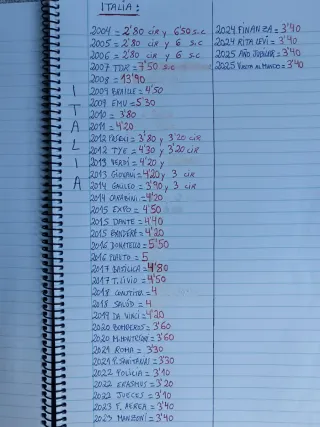 ITALIA:
2004 = 2'80 CIR y 6'50 S.C
2005 = 2'80 CIR y 6 S.C
2006 = 2'80 CIR y 6 S.C
2007 TDR = 7'50 S.C
2008 = 13'90
2009 BRAILLE = 4'50
2009 EMU = 5'30
2010 = 3'80
2011 = 4'20
2012 PASCOLI = 3'80 y 3'20 CIR
2012 TYE = 4'30 y 3'20 CIR
2013 VERDI = 4'20 y
2013 GIOVANI = 4'20 y 3 CIR
2014 GALILEO = 3'90 y 3 CIR
2014 CARABINI = 4'20
2015 EXPO = 4'50
2015 DANTE = 4'40
2015 BANDERA = 4'20
2016 DONATELLO = 5'50
2016 PLAUTO = 5
2017 BASILICA = 4'80
2017 T. LIVIO = 4'50
2018 CONSTITUC = 4
2018 SALUD = 4
2019 DA VINCI = 4'20
2020 BOMBEROS = 3'60
2020 M. MONTESSORI = 3'60
2021 ROMA = 3'30
2021 P. SANITARIAS = 3'30
2022 POLICIA = 3'10
2022 ERASMUS = 3'20
2022 JUECES = 3'10
2023 F. AEREA = 3'40
2023 MANZONI = 3'40
ITALIA
2024 FINANZA = 3'40
2024 RITA LEVI = 3'40
2025 AÑO JUBILAR = 3'40
2025 = 3'40